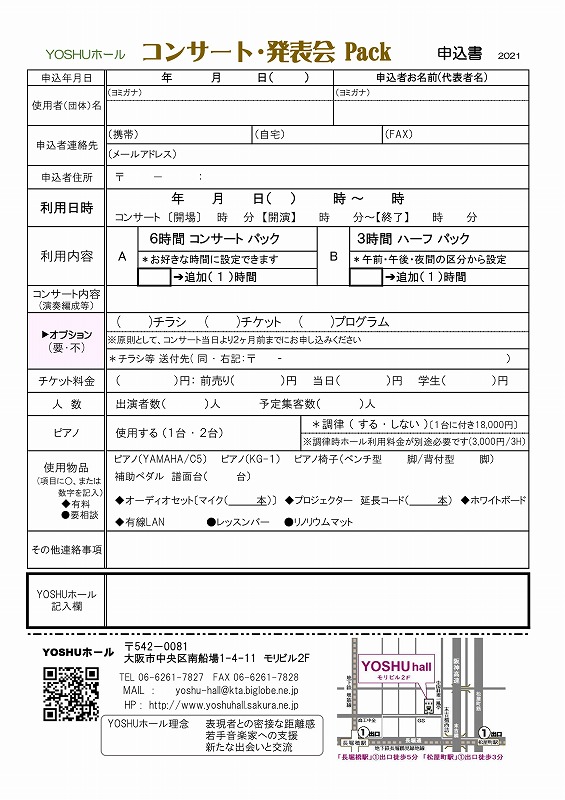 YOSHUホール コンサート・発表会 Pack 申込書 2021
申込年月日 年 月 日( ) 申込者お名前(代表者名)
使用者(団体)名 (ヨミガナ) (ヨミガナ)
申込者連絡先 (携帯) (自宅) (FAX)
(メールアドレス)
申込者住所 〒 － :
利用日時 年 月 日( ) 時 ～ 時
コンサート 〔開場〕 時 分 【開演】 時 分～【終了】 時 分
利用内容 A 6時間 コンサート パック B 3時間 ハーフ パック
＊お好きな時間に設定できます ＊午前・午後・夜間の区分から設定
➔追加( 1 )時間 ➔追加( 1 )時間
コンサート内容
(演奏編成等)
▶オプション
(要・不)
( )チラシ ( )チケット ( )プログラム
※原則として、コンサート当日より2ヶ月前までにお申し込みください
＊チラシ等 送付先( 同 ・ 右記:〒 - )
チケット料金 ( )円: 前売り( )円 当日( )円 学生( )円
人 数 出演者数( )人 予定集客数( )人
ピアノ 使用する (1台 ・ 2台) ＊調律 ( する ・ しない )〔1台に付き18,000円〕
※調律時ホール利用料金が別途必要です(3,000円/3H)
使用物品
(項目に○、または
数字を記入)
◆有料
●要相談
ピアノ(YAMAHA/C5) ピアノ(KG-1) ピアノ椅子(ベンチ型 脚/背付型 脚)
補助ペダル 譜面台( 台)
◆オーディオセット〔マイク( 本)〕 ◆プロジェクター 延長コード( 本) ◆ホワイトボード
◆有線LAN ●レッスンバー ●リノリウムマット
その他連絡事項
YOSHUホール
記入欄
YOSHUホール 〒542－0081
大阪市中央区南船場1-4-11 モリビル2F
TEL 06-6261-7827 FAX 06-6261-7828
MAIL : yoshu-hall@kta.biglobe.ne.jp
HP : http://www.yoshuhall.sakura.ne.jp
YOSHUホール理念 表現者との密接な距離感
若手音楽家への支援
新たな出会いと交流
YOSHU hall
モリビル2F
阪神高速
松屋町筋
商工中金
GS
①出口 ①出口
長堀橋駅 長堀通 松屋町駅
地下鉄長堀鶴見緑地線
「長堀橋駅」①出口徒歩5分 「松屋町駅」①出口徒歩3分